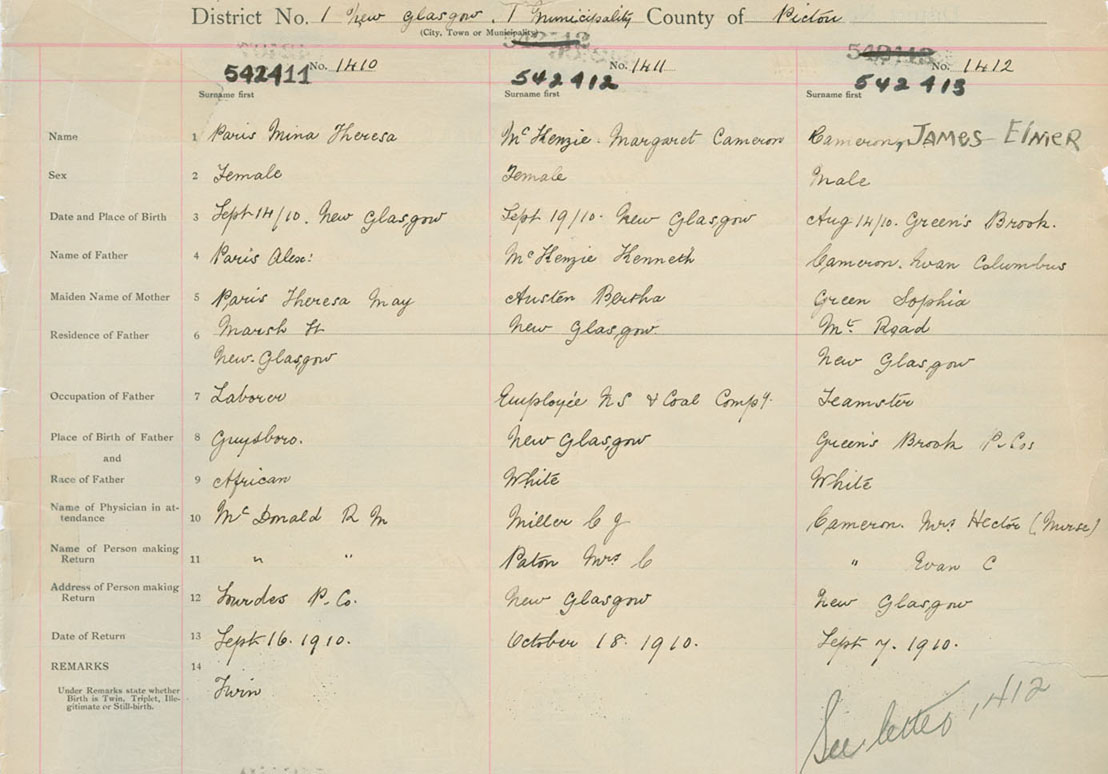 District No. 1 New Glasgow. 1 Municipality County of Pictou
(City, Town or Municipality)
542411 No. 1410 542412 No. 1411 542413 No. 1412
Surname first Surname first Surname first
Name 1 Paris Mina Theresa McKenzie. Margaret Cameron Cameron, JAMES ElMER
Sex 2 Female Female Male
Date and Place of Birth 3 Sept 14/10. New Glasgow Sept 19/10. New Glasgow Aug 14/10. Green's Brook.
Name of Father 4 Paris Alex: McKenzie Kenneth Cameron. Evan Columbus
Maiden Name of Mother 5 Paris Theresa May Austen Bertha Green Sophia
Residence of Father 6 Marsh St New Glasgow Mt Road
New. Glasgow New Glasgow
Occupation of Father 7 Laborer Employée NS & Coal Compy. Teamster
Place of Birth of Father 8 Guysboro. New Glasgow Green's Brook P. Co
and
Race of Father 9 African White White
Name of Physician in at-
tendance 10 McDonald R M Miller C J Cameron. Mrs Hector (Nurse)
Name of Person making
Return 11 " " Paton Mrs C " Evan C
Address of Person making
Return 12 Lourdes P. Co. New Glasgow New Glasgow
Date of Return 13 Sept 16. 1910. October 18. 1910. Sept 7. 1910.
REMARKS 14
Under Remarks state whether
Birth is Twin, Triplet, Ille-
gitimate or Still-birth.
Twin
See letter 1412